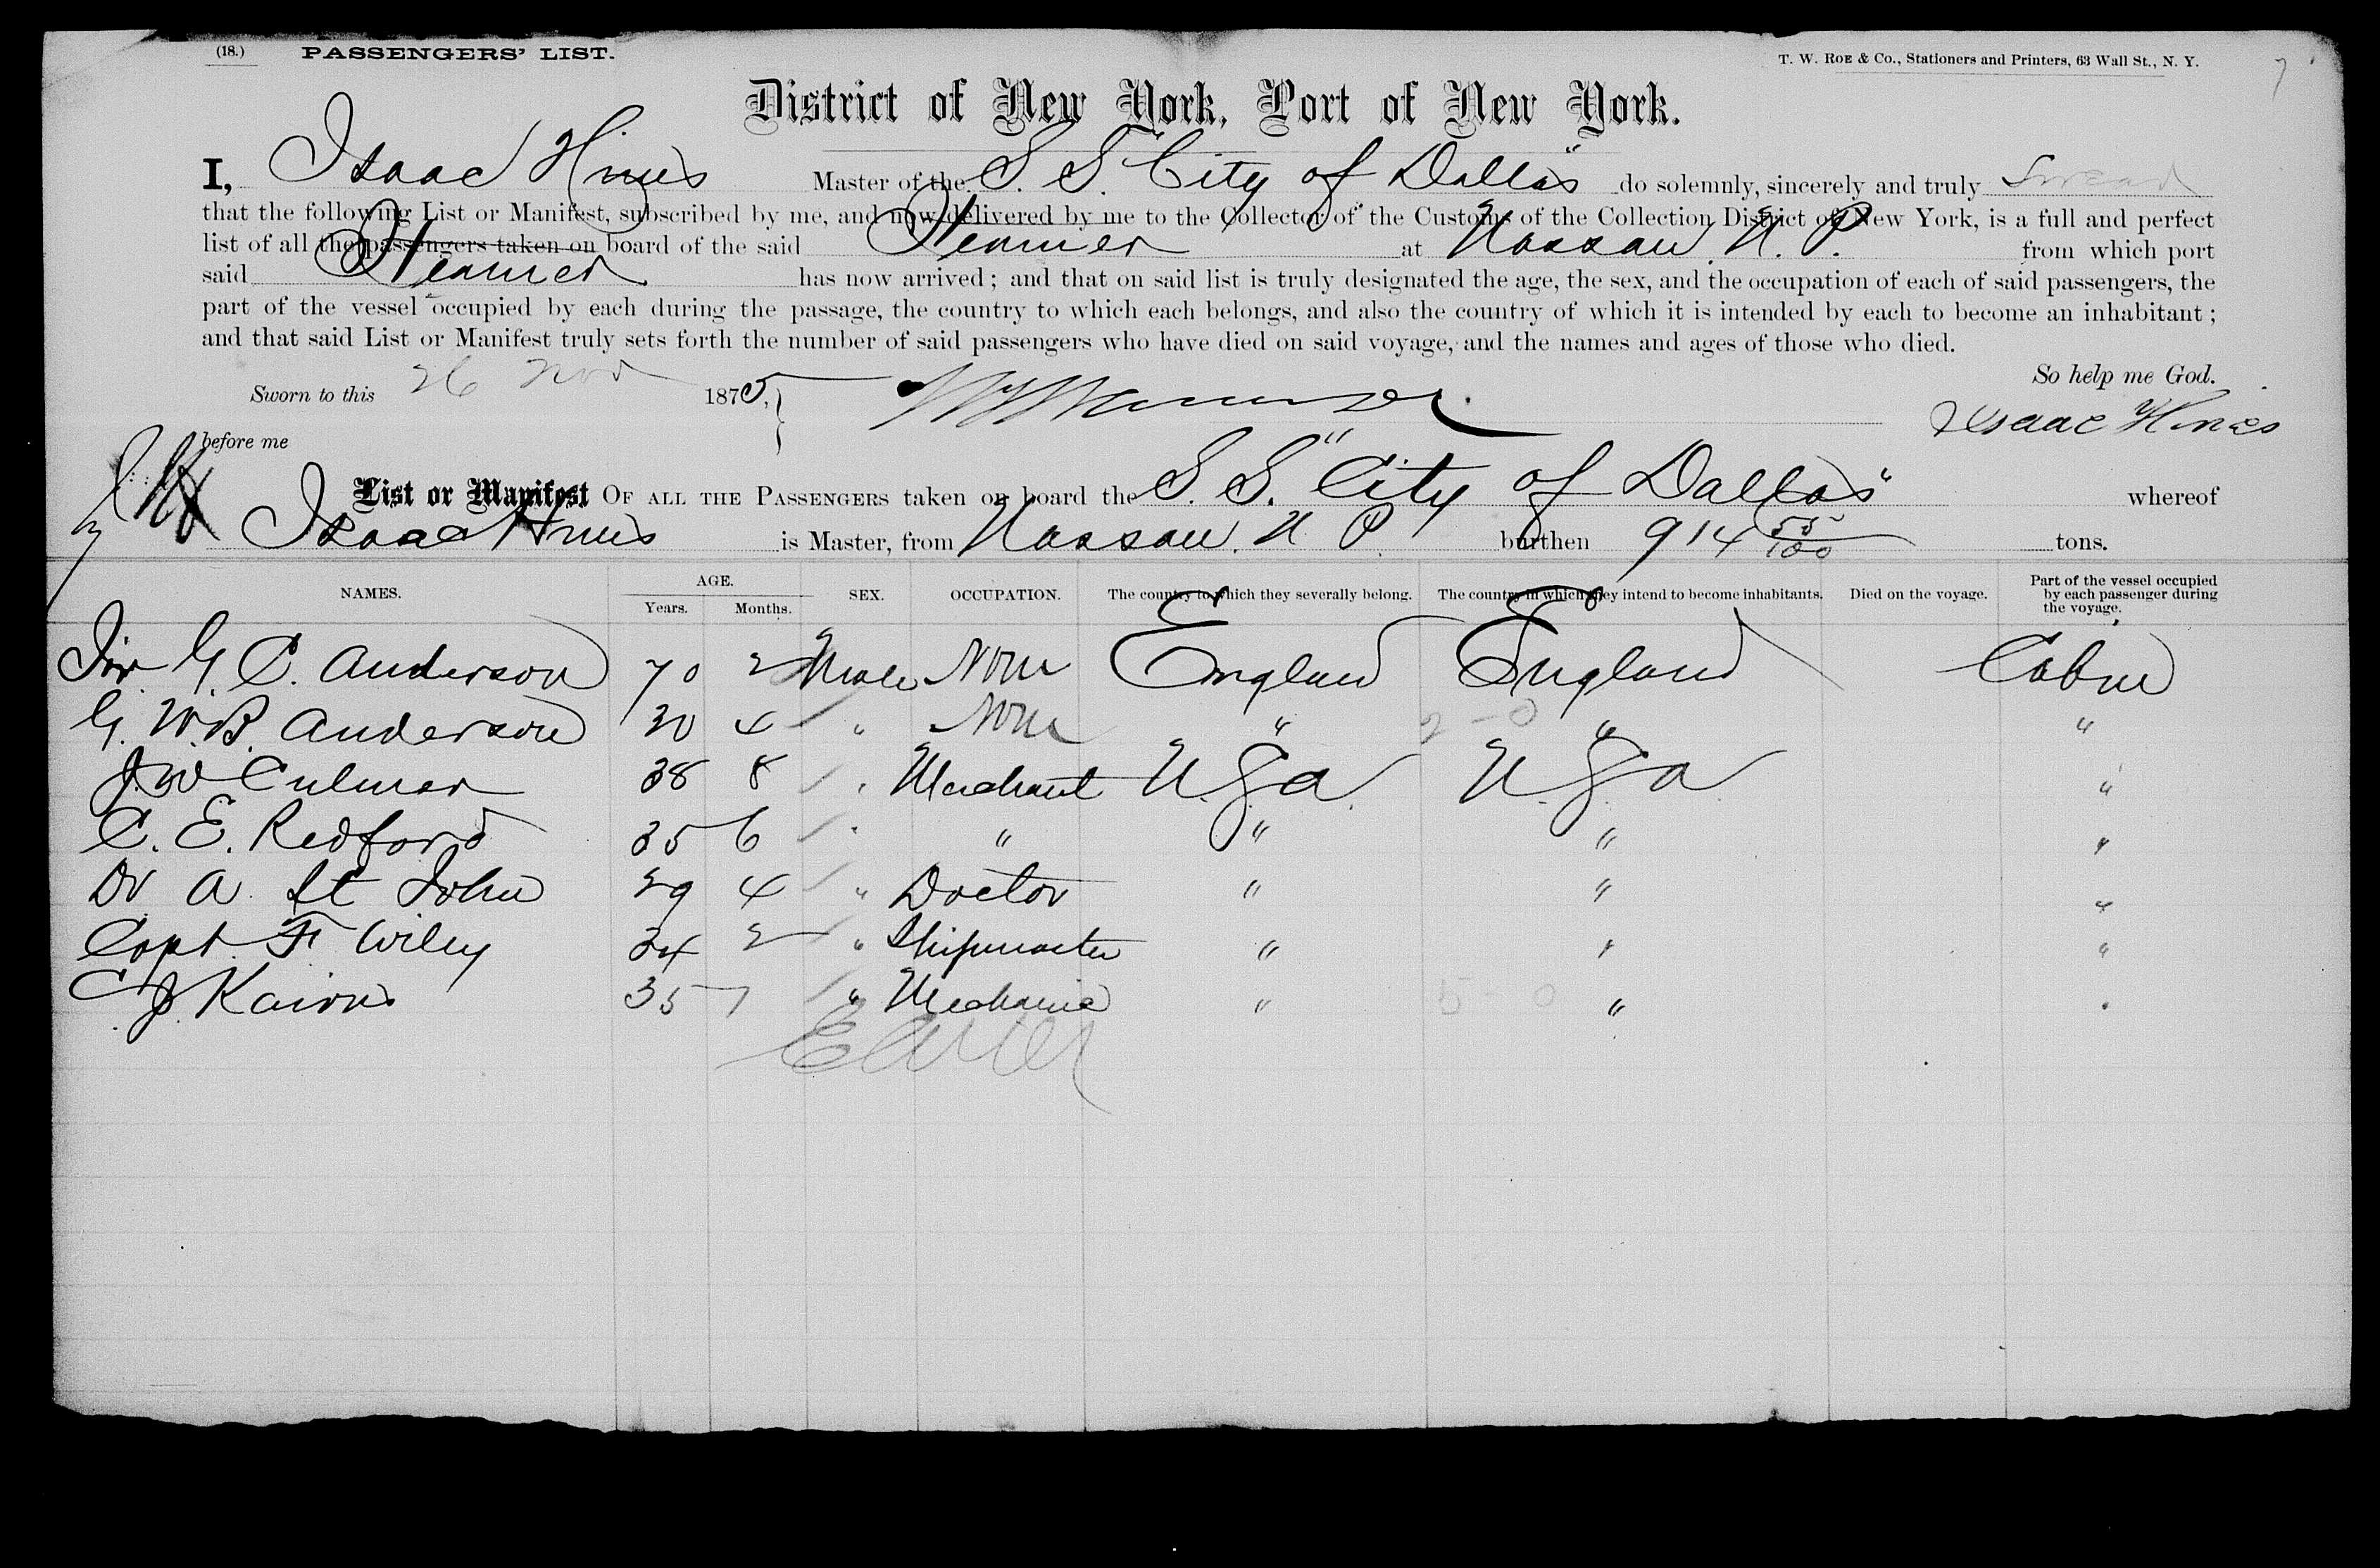 (18.) PASSENGERS' LIST. T. W. ROE & Co., Stationers and Printers, 63 Wall St., N. Y. 7
District of New York, Port of New York.
I, Isaac Hines Master of the S. S. "City of Dallas" do solemnly, sincerely and truly Swear
that the following List or Manifest, subscribed by me, and now delivered by me to the Collector of the Customs of the Collection District of New York, is a full and perfect
list of all the passengers taken on board of the said Steamer at Nassau. N. P. from which port
said Steamer has now arrived; and that on said list is truly designated the age, the sex, and the occupation of each of said passengers, the
part of the vessel occupied by each during the passage, the country to which each belongs, and also the country of which it is intended by each to become an inhabitant;
and that said List or Manifest truly sets forth the number of said passengers who have died on said voyage, and the names and ages of those who died.
So help me God.
Sworn to this 26 Nov 1875,
Isaac Hines
before me
List or Manifest OF ALL THE PASSENGERS taken on board the S. S. "City of Dallas" whereof
Isaac Hines is Master, from Nassau. N. P. burthen 914 55/100 tons.
NAMES. AGE. Years. Months. SEX. OCCUPATION. The country to which they severally belong. The country in which they intend to become inhabitants. Died on the voyage. Part of the vessel occupied by each passenger during the voyage.
Sir G. C. Anderson 70 2 Male None England England Cabin
G. W. B. Anderson 30 4 " None " " "
J. W Culmer 38 8 " Merchant U. S. a. U. S. a. "
C. E. Redford 35 6 " " " " "
Dr A. St John 29 4 " Doctor " " "
Capt. F. Wiley 34 2 " Shipmaster " " "
C. J. Kairns 35 7 " Mechanic " " "